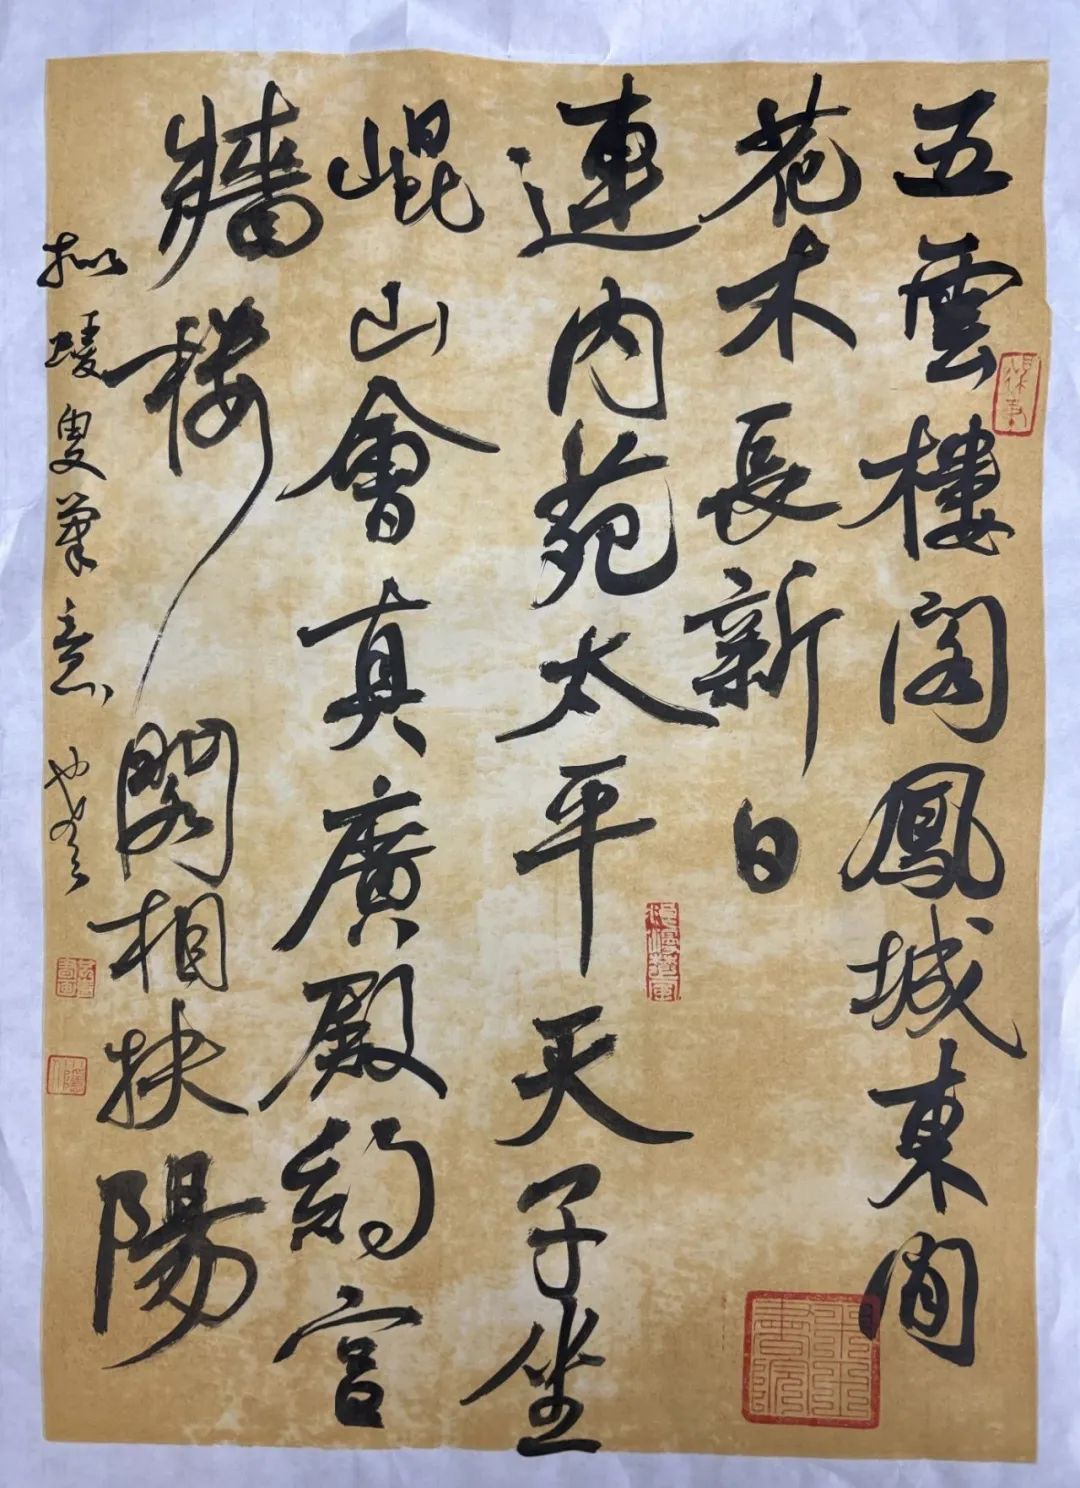 五雲樓閣鳳城東間
花木長新日
連内苑太平天子坐
崐山會真廣殿約宫
牆樓閣相扶陽
拟瞍叟筆意